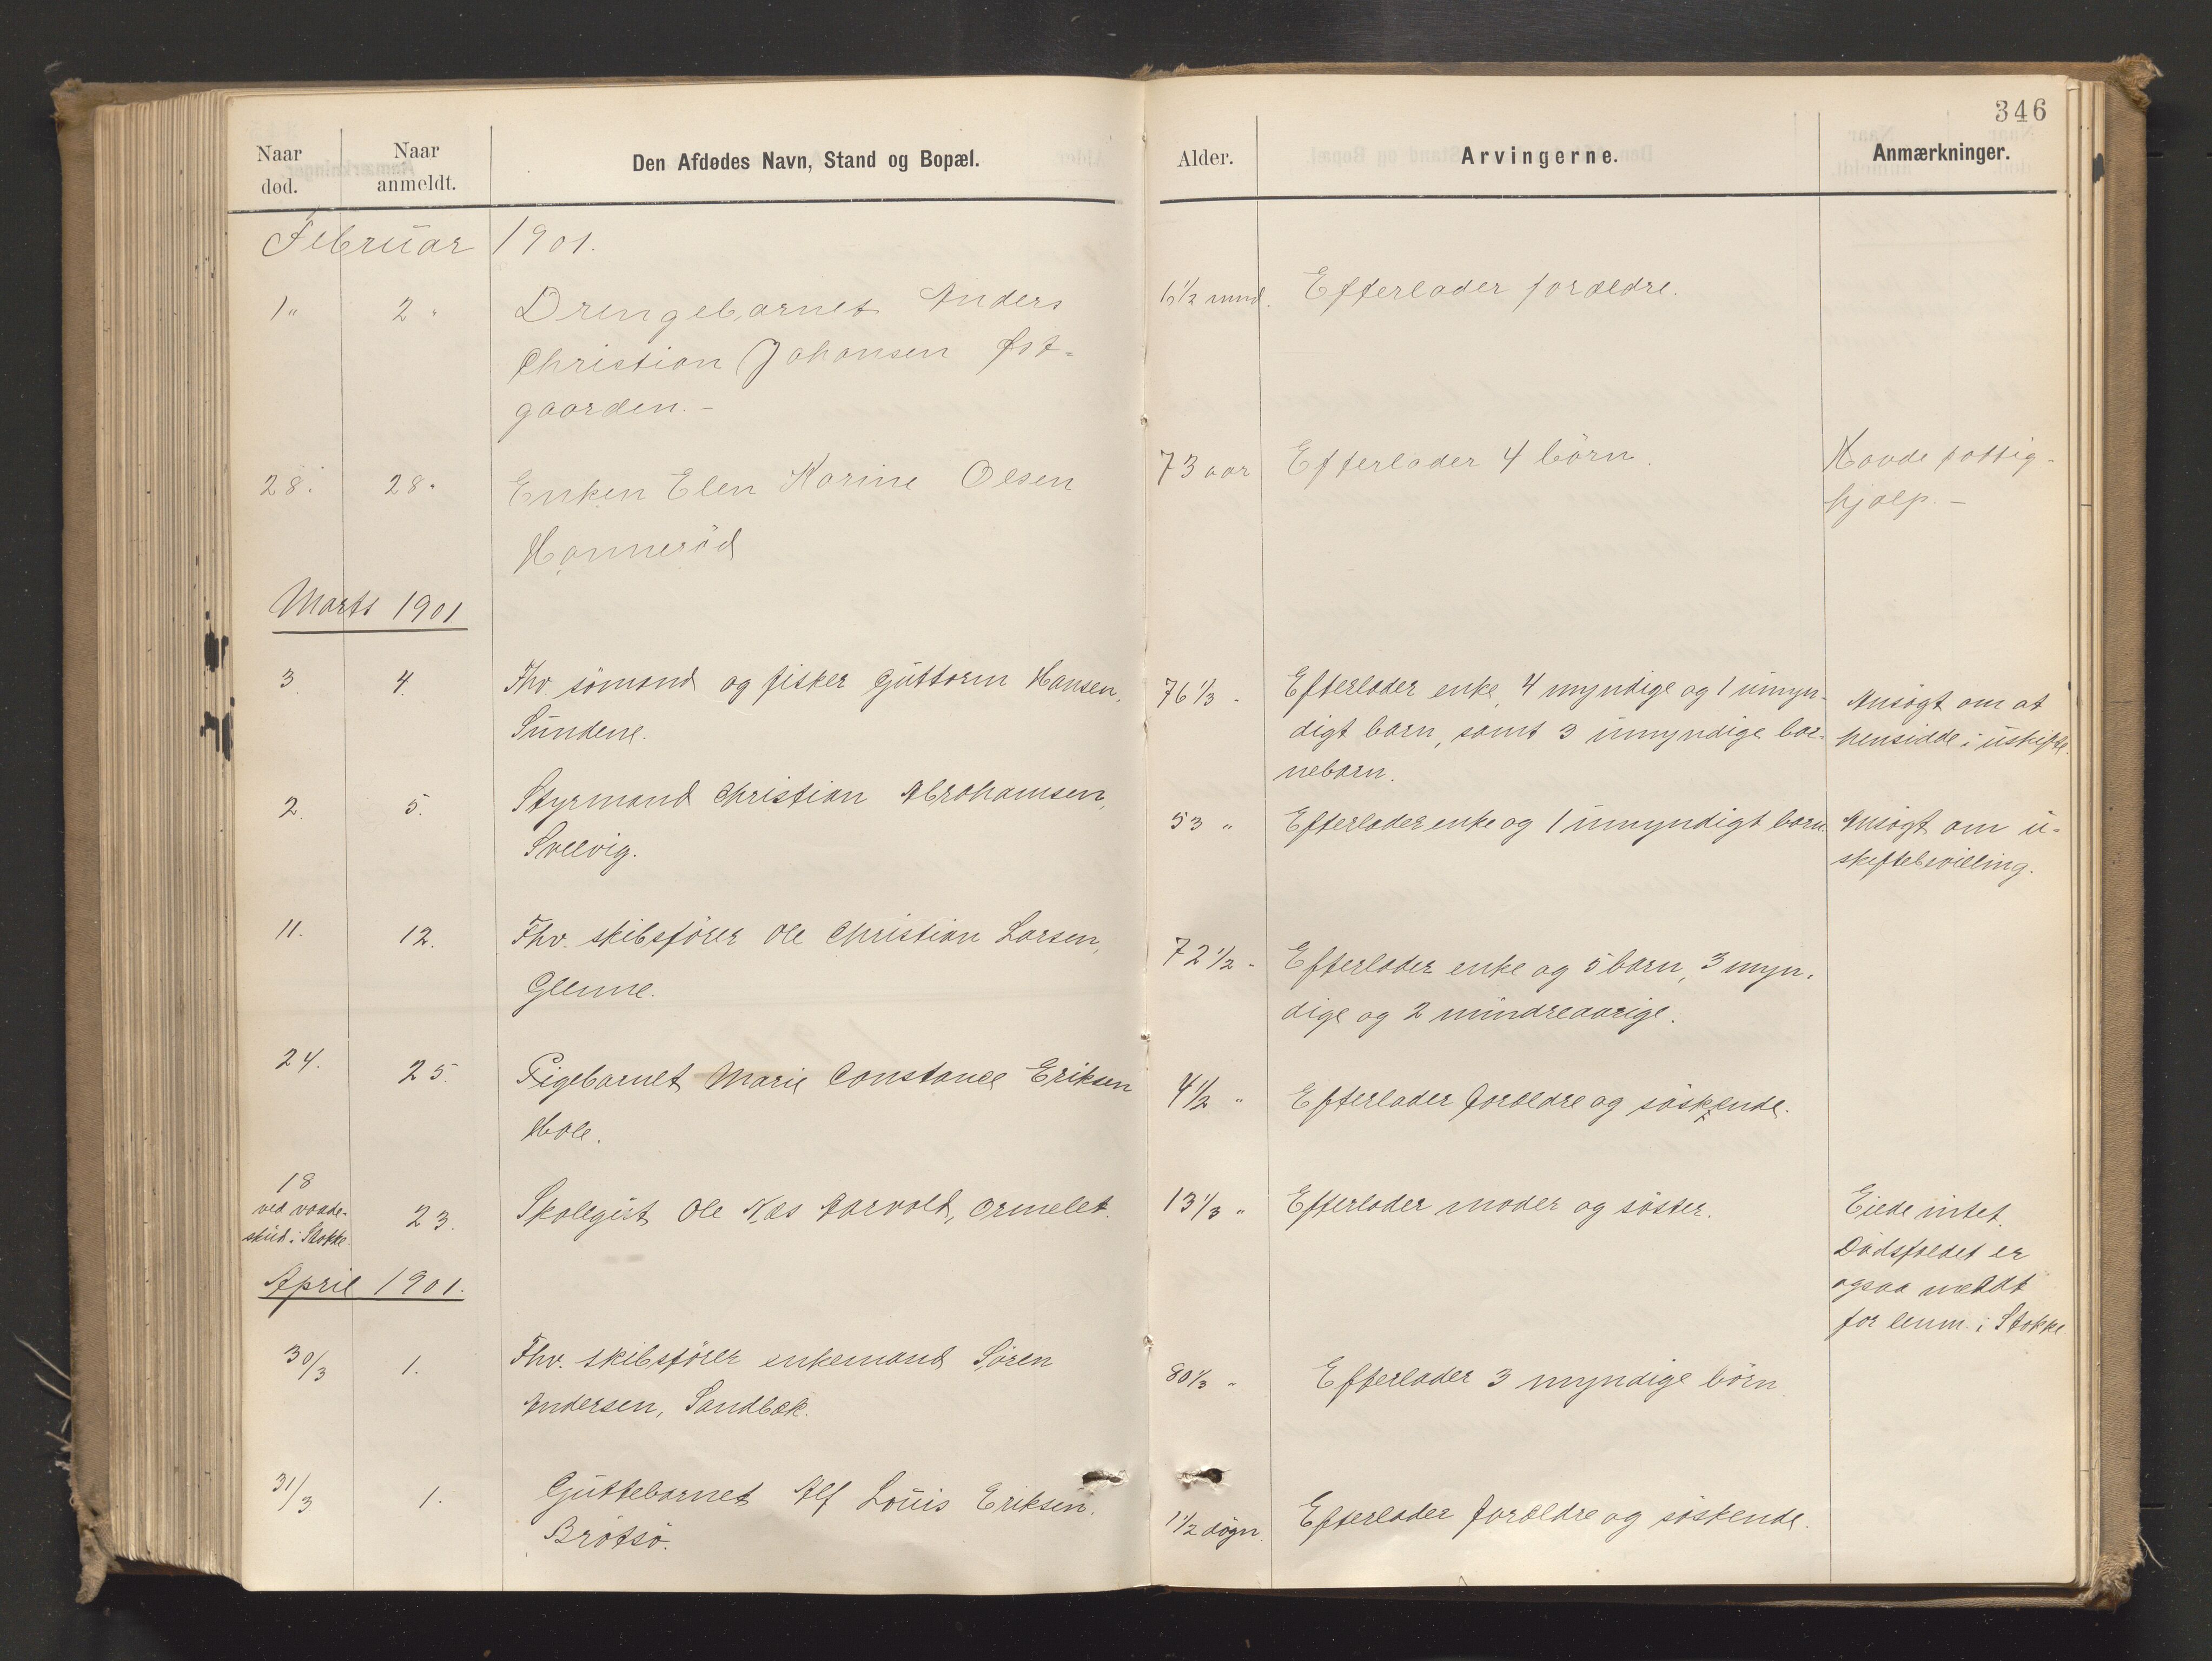 346
Naar død.
Naar anmeldt.
Den Afdødes Navn, Stand og Bopæl.
Alder.
Arvingerne.
Anmærkninger.
Februar 1901.
1" 2 " Drengebarnet Anders
Christian Johansen Øst-
gaarden. -
6½ mnd. Efterlader forældre.
28. 28. Enken Elen Karine Olsen
Hannerød
73 aar Efterlader 4 børn.
Havde fattig-
hjælp. -
Marts 1901.
3. 4. Fhv. sömand og fisker Guttorm Hansen,
Sundene.
76 1/3 - Efterlader enke, 4 myndige og 1 umyn-
digt barn, samt 3 umyndige bar-
nebarn.
Ansögt om at
hensidde i uskifte.
2. 5. Styrmand Christian Abrahamsen,
Svelvig.
53 " Efterlader enke og 1 umyndigt barn.
Ansögt om u-
skiftebevilling.
11. 12. Fhv. skibsförer Ole Christian Larsen,
Glenne.
72 ½ - Efterlader enke og 5 barn, 3 myn-
dige og 2 mindreaarige.
24. 25. Pigebarnet Marie Constance Eriksen
Hole.
4½ " Efterlader forældre og söskende.
18
ved vaade-
skud i Stokke
23. Skolegut Ole Kas Aarvold, Ormelet.
13 1/3 " Efterlader moder og söster.
Eiede intet.
Dödsfaldet er
ogsaa meldt
for lensm. i Stokke
April 1901.
30/3 1. Fhv. skibsförer enkemand Sören
Andersen, Sandbæk.
80 1/3 " Efterlader 3 myndige börn.
31/3 1. Guttebarnet Alf Louis Eriksen.
Brötsö.
1½ dögn. Efterlader forældre og söskende.